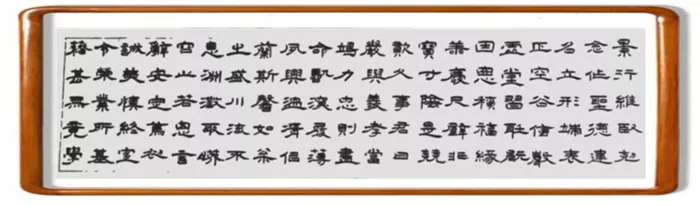 景行維賢剋
念作聖德建
名立形端表
正空谷傳聲
虛堂習聽禍
因惡積福緣
善慶尺璧非
寶寸陰是競
資父事君曰
嚴與敬孝當
竭力忠則盡
命臨深履薄
夙興溫凊似
蘭斯馨如松
之盛川流不
息淵澄取映
容止若思言
辭安定篤初
誠美慎終宜
令榮業所基
籍甚無竟學